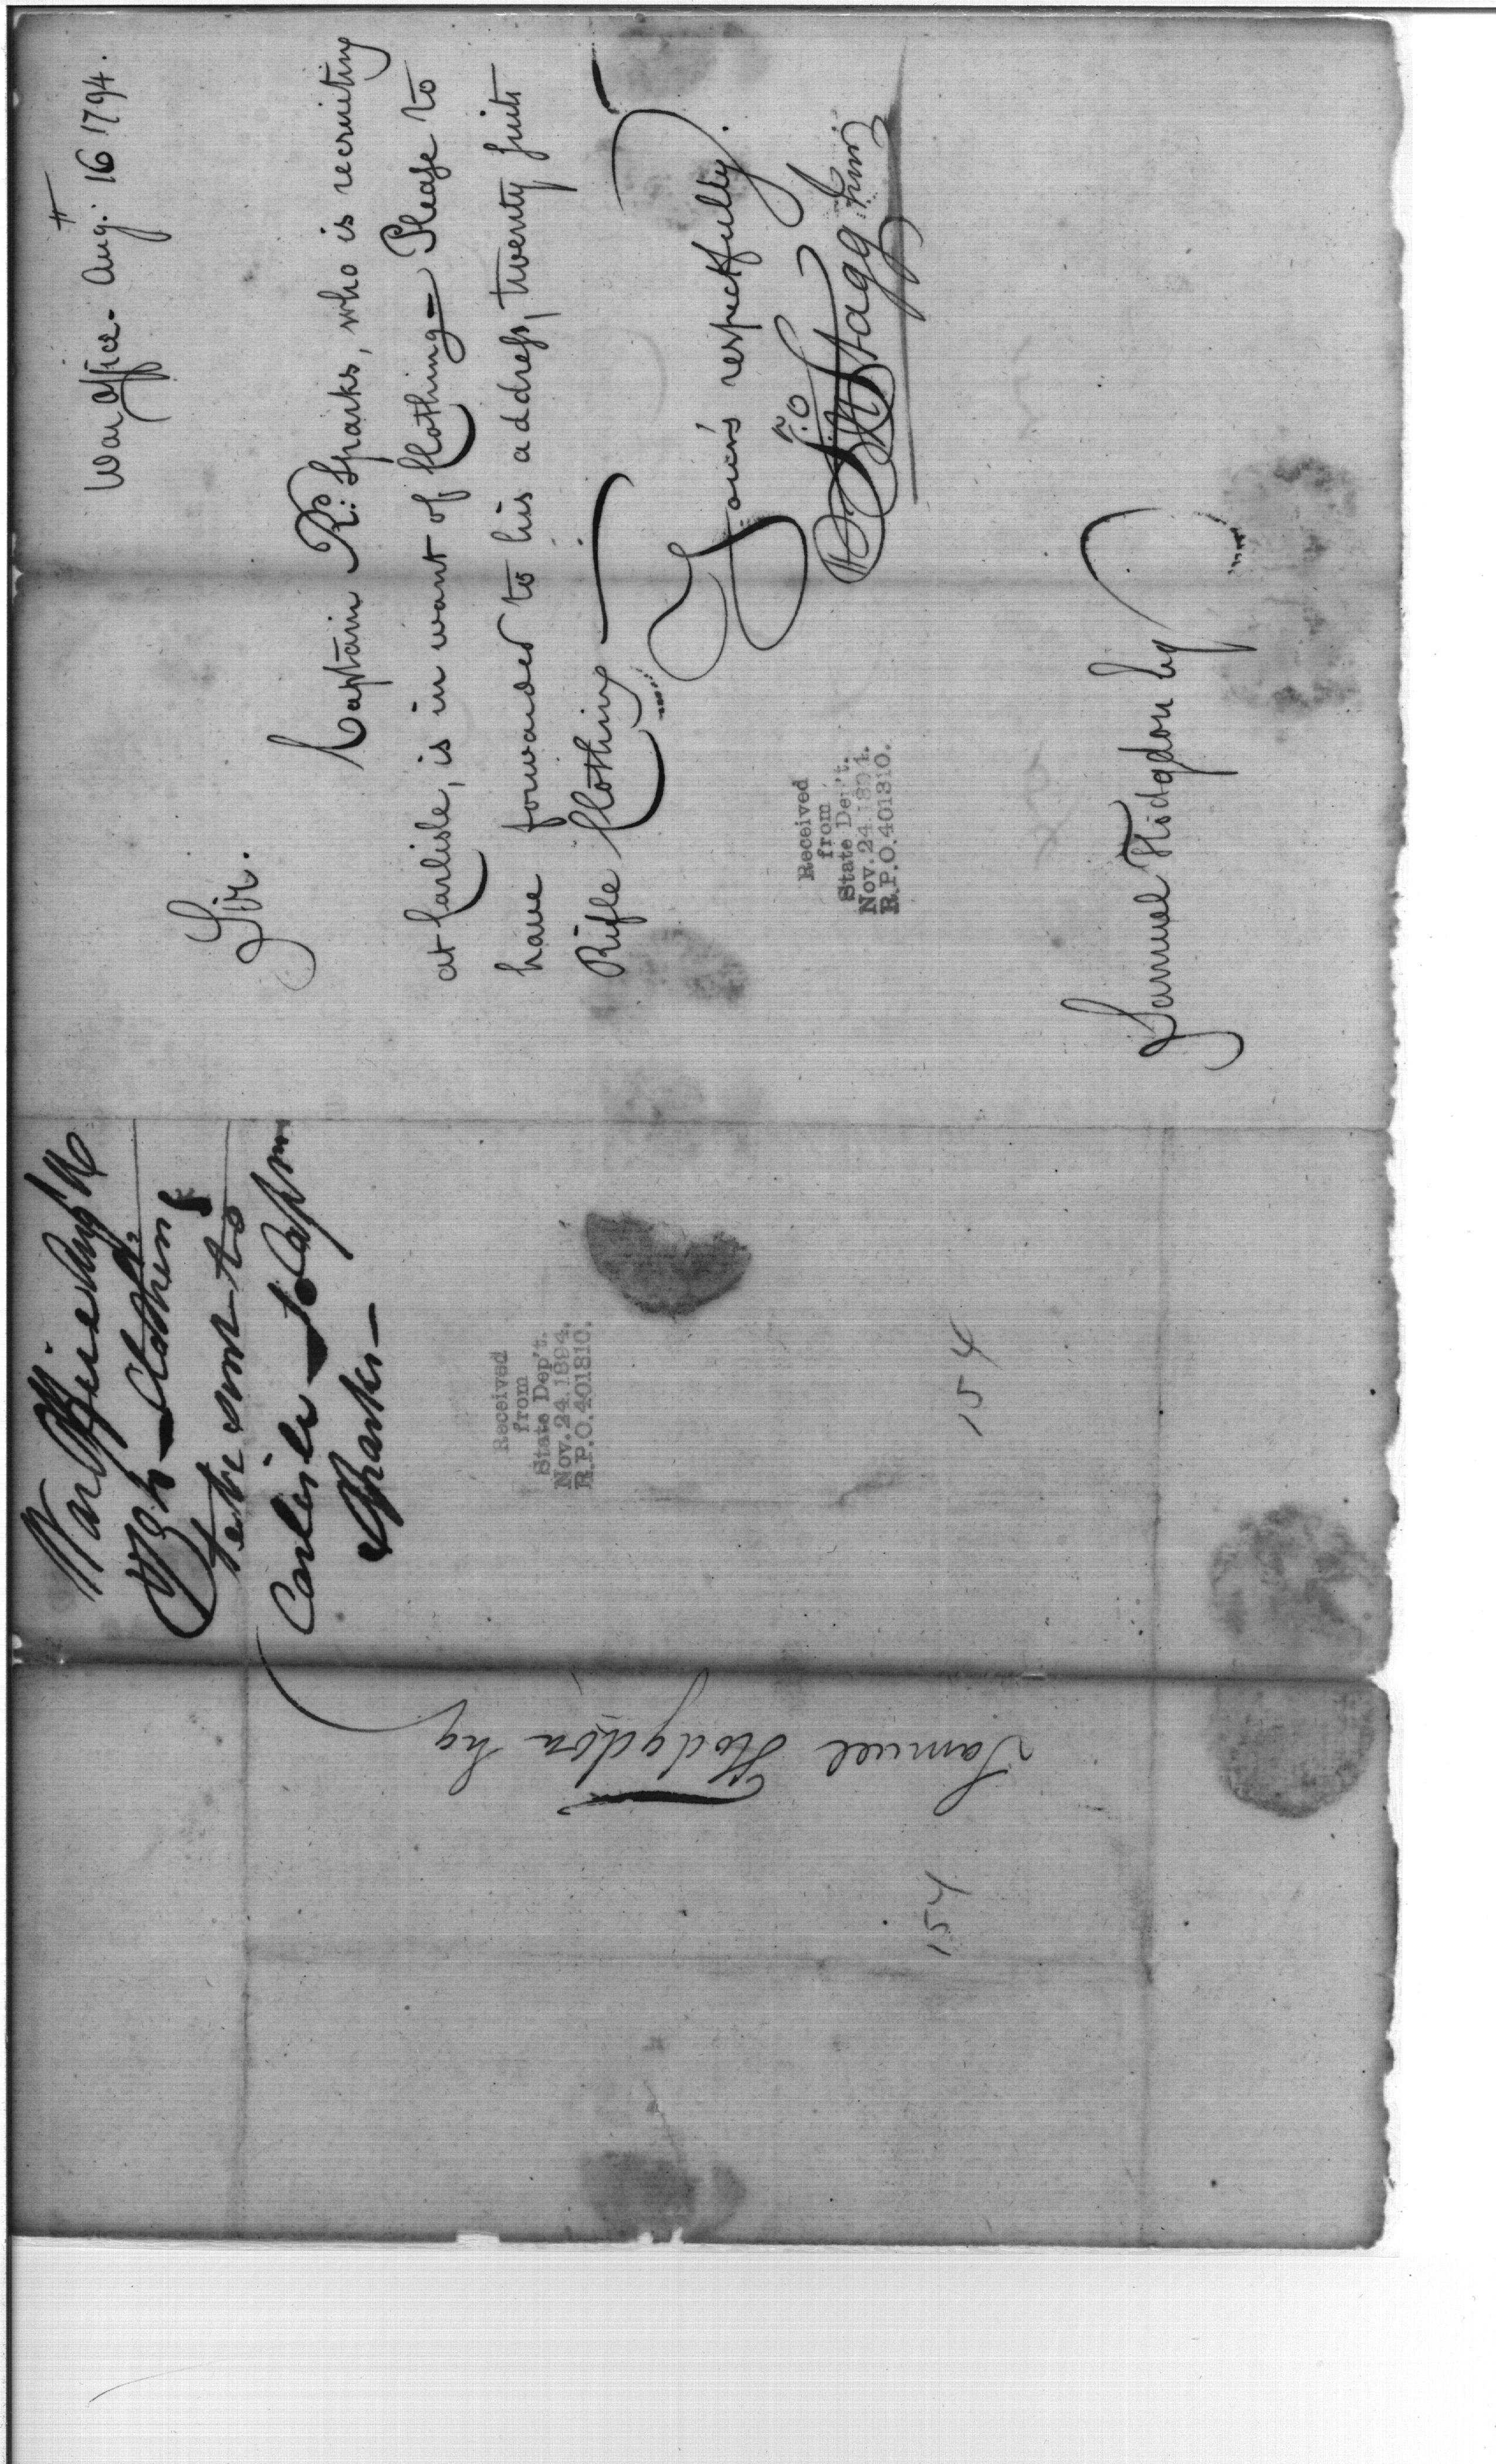 War Office. Augt. 16 1794.
Sir.
Captain Rd: Sparks, who is recruiting
at Carlisle, is in want of Clothing = Please to
have forwarded to his address, twenty suits
Rifle Clothing
Your's respectfully.
Jno Stagg Junr.
Received
from
State Dep't.
Nov. 24. 1894.
R.P.O. 401310.
Samuel Hodgdon Esq
War Office Augt 16
1794 Clothing
to be sent to
Carlisle to Capn
Sparks
Received
from
State Dep't.
Nov. 24. 1894.
R.P.O. 401310.
154
Samuel Hodgdon Esq
154